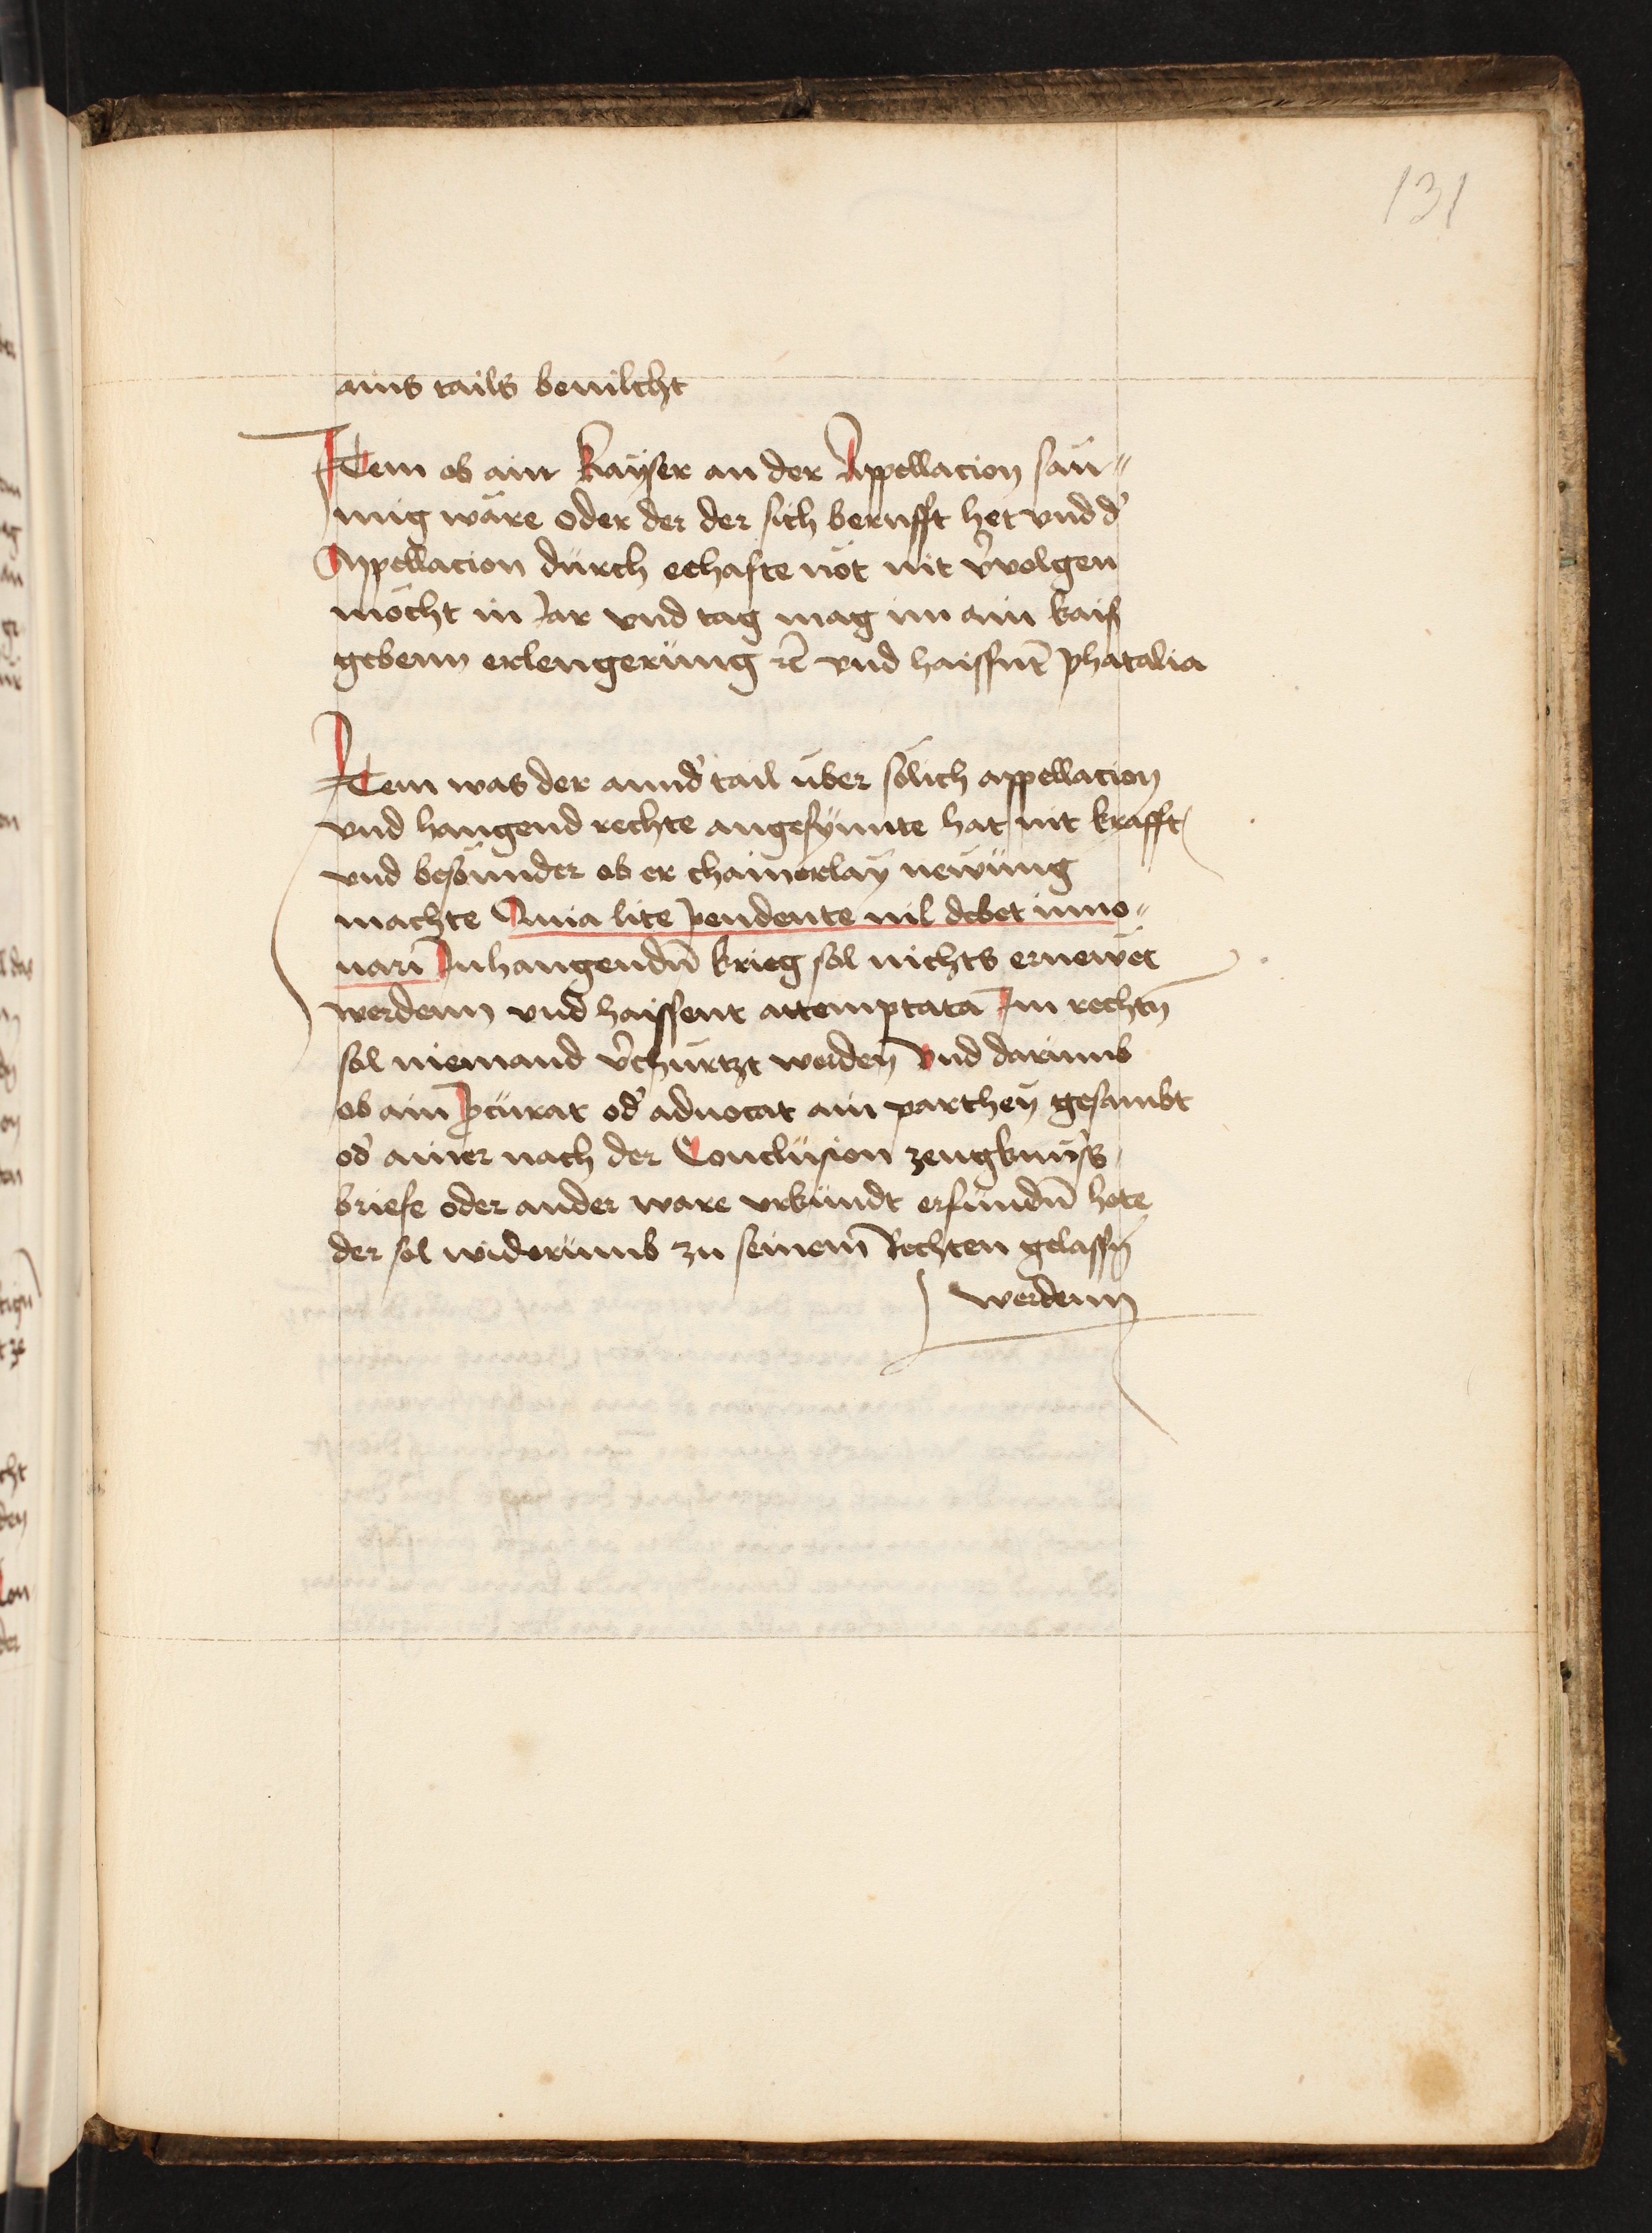 131
ains tails benilcht
Item ob ain kayser an der Appellacion säu¬
mig wäre oder der der sich berufft het vnd d'
Appellacion dürch eehafte not nit v'volgen
möcht in Jar vnd tag mag im ain kaiß
gebenn erlengerüng rc̄ vnd haissent̄ phatalia
Item was der annd' tail über sölich appellacion
vnd hangend rechte angefynnte hat nit krafft
vnd besunder ob er chainerlay newüng
machte Quia lite pendente nil debet inno¬
uari Inhangendn̄ krieg sol nichts ernewet
werdenn vnd haissent attemptata Im rechtn̄
sol niemand v'chürtzt werden Vnd darumb
ob ain p̱curat od' aduocat ain parthey gesambt
od' ainer nach der Conclüsion zeugknüss
briefe oder ander ware vrkündt erfundn̄ hete
der sol widerumb zu seinem Rechten gelassn̄
werdenn